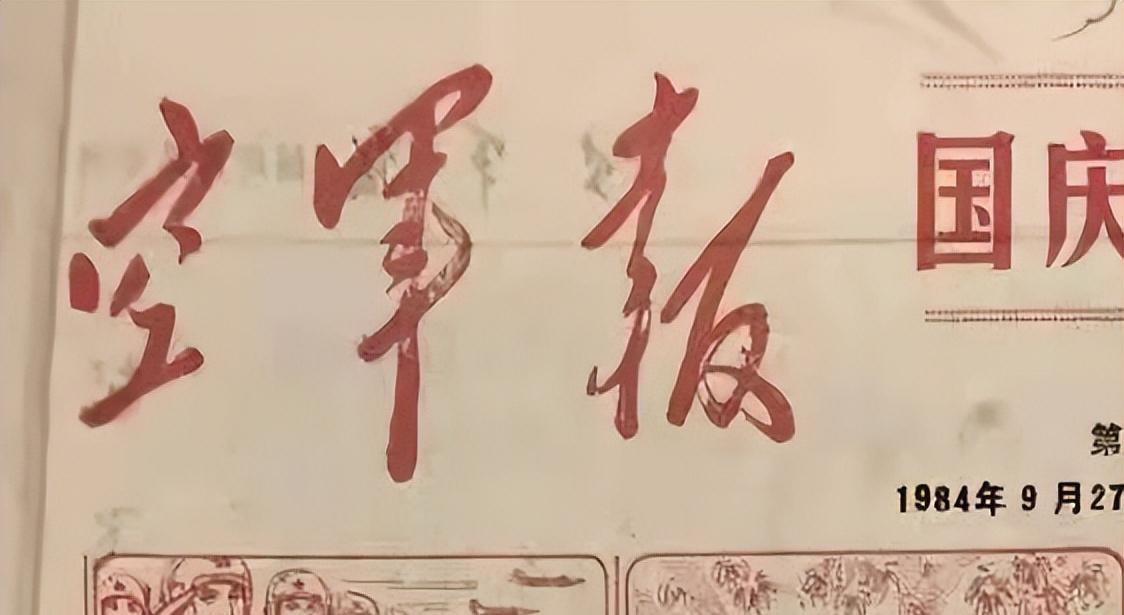 空军报
国庆
第
1984年9月27